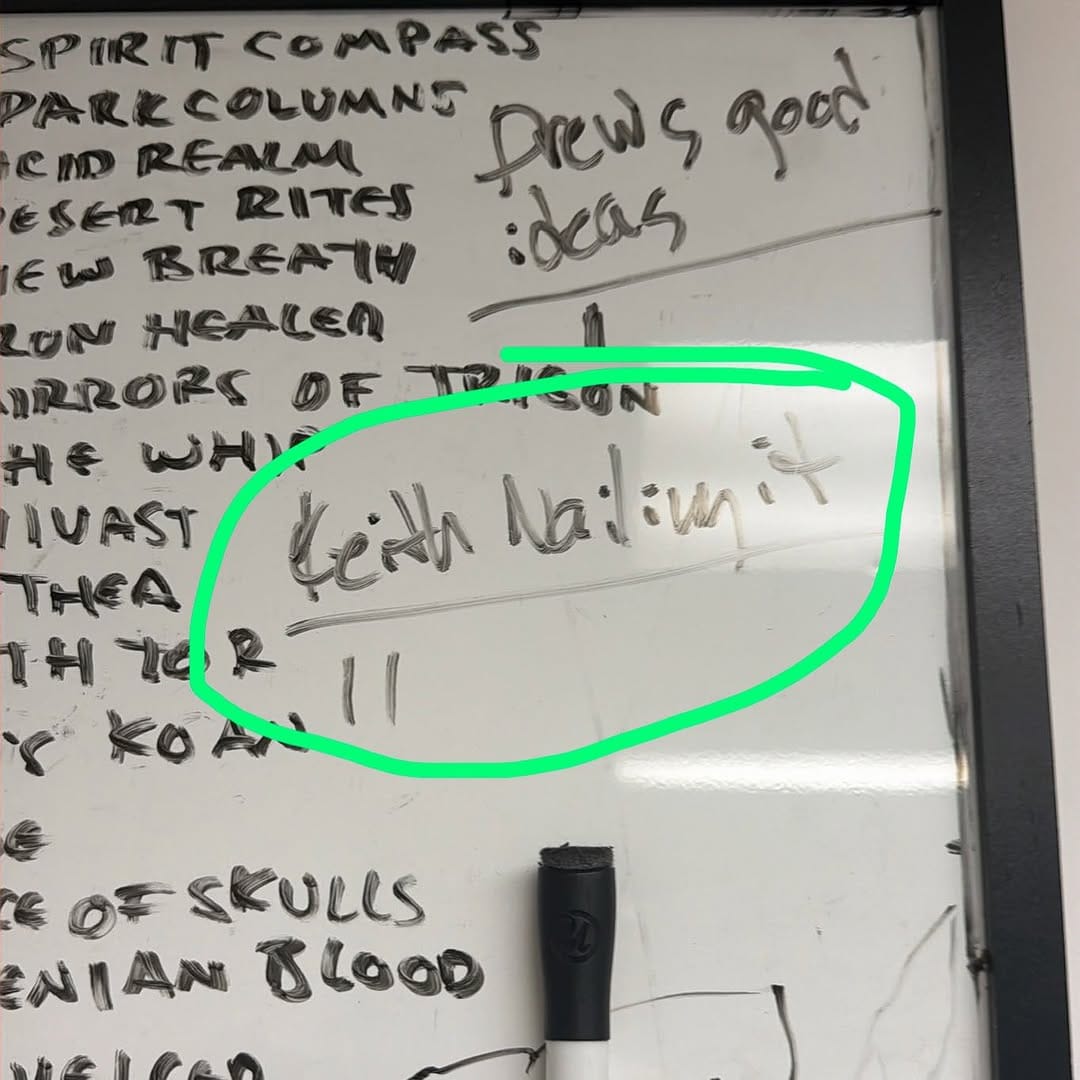 SPIRIT COMPASS
DARK COLUMNS
ACID REALM
DESERT RITES
NEW BREATH
IRON HEALER
MIRRORS OF TRISON
THE WHIP
VAST
THEA
TH TOR
KOAN
E
CE OF SKULLS
ENIAN BLOOD
Drew's good
ideas
|
Keith Nailing it
||